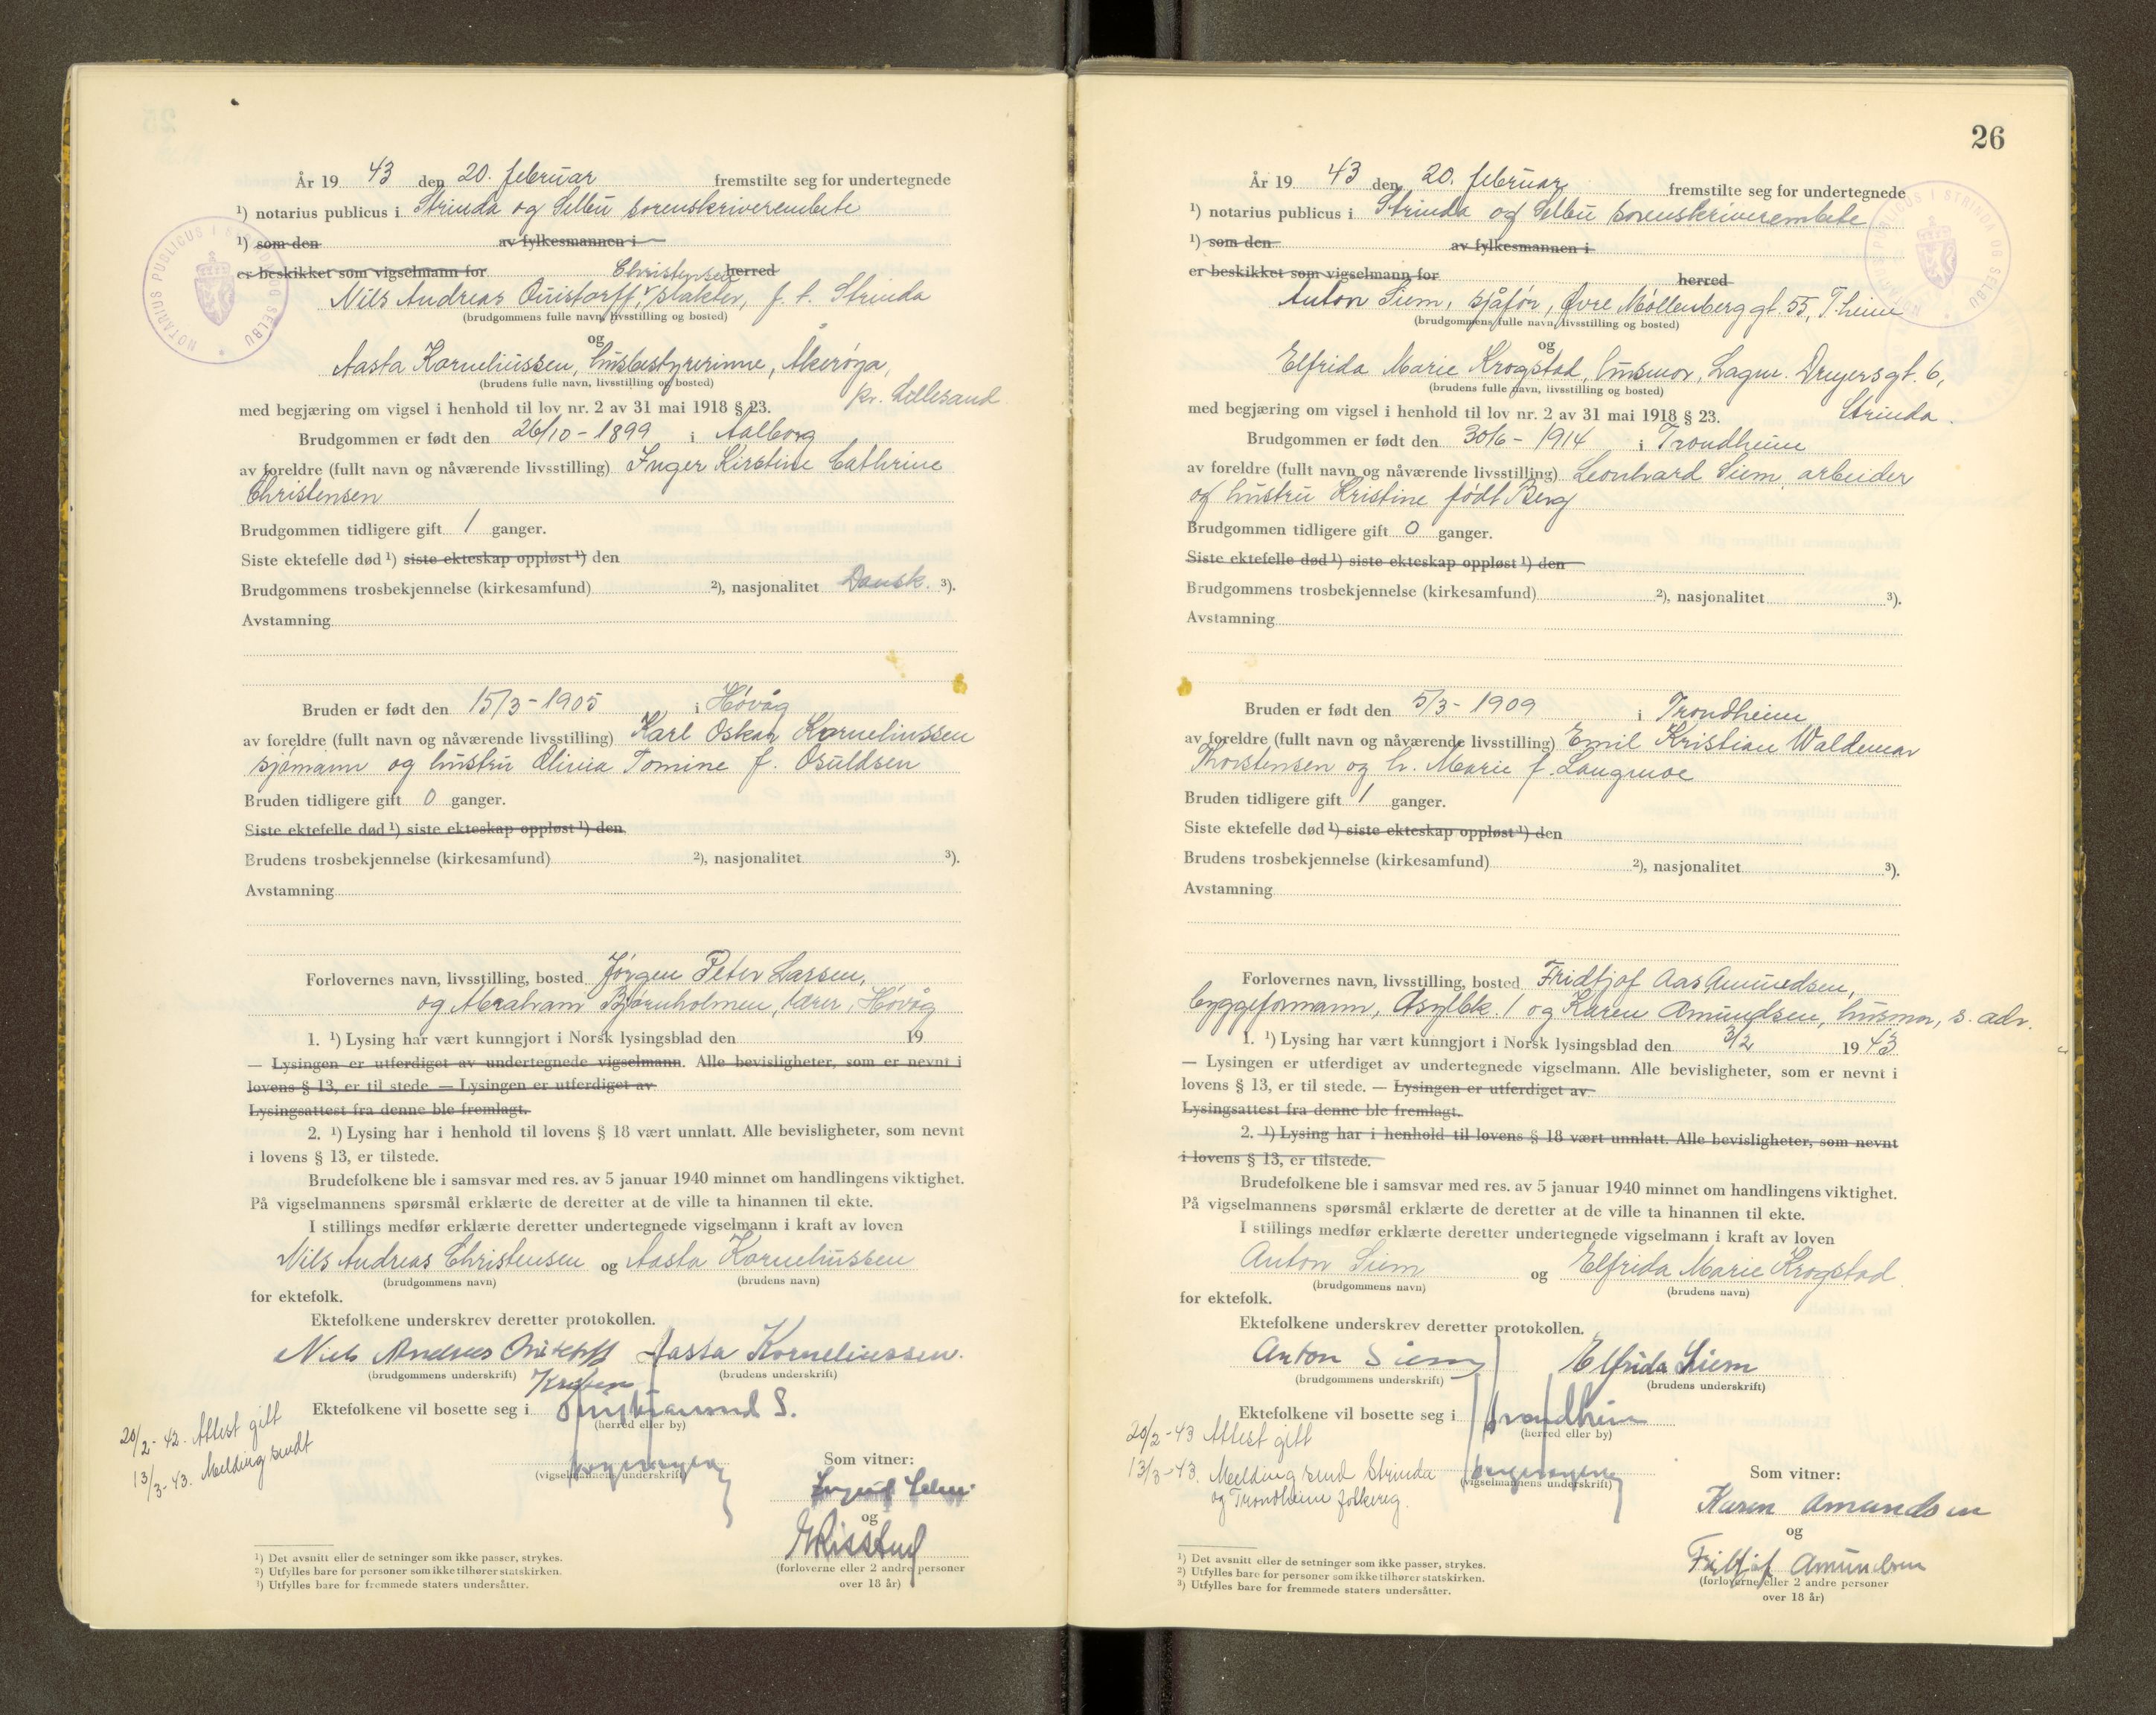 År 19 43 den 20. februar fremstilte seg for undertegnede
¹) notarius publicus i Strinda og Selbu sorenskriverembete
¹) som den av fylkesmannen i
er beskikket som vigselmann for herred
Christensen
Nils Andreas Quistorff, slakter, f. t. Strinda
(brudgommens fulle navn, livsstilling og bosted)
og
Aasta Korneliussen, husbestyrerinne, Åkerøya,
(brudens fulle navn, livsstilling og bosted)
pr. Lillesand
med begjæring om vigsel i henhold til lov nr. 2 av 31 mai 1918 § 23.
Brudgommen er født den 26/10-1899 i Aalborg
av foreldre (fullt navn og nåværende livsstilling) Inger Kirstine Cathrine
Christensen
Brudgommen tidligere gift 1 ganger.
Siste ektefelle død ¹) siste ekteskap oppløst ¹) den
Brudgommens trosbekjennelse (kirkesamfund) ²), nasjonalitet Dansk. ³).
Avstamning
Bruden er født den 15/3-1905 i Høvåg
av foreldre (fullt navn og nåværende livsstilling) Karl Oskar Korneliussen
sjømann og hustru Olivia Tomine f. Osuldsen
Bruden tidligere gift 0 ganger.
Siste ektefelle død ¹) siste ekteskap oppløst ¹) den
Brudens trosbekjennelse (kirkesamfund) ²), nasjonalitet ³).
Avstamning
Forlovernes navn, livsstilling, bosted Jørgen Peter Larsen,
og Abraham Bjørnholmen, lærer, Høvåg
1. ¹) Lysing har vært kunngjort i Norsk lysingsblad den 19
— Lysingen er utferdiget av undertegnede vigselmann. Alle bevisligheter, som er nevnt i
lovens § 13, er til stede — Lysingen er utferdiget av
Lysingsattest fra denne ble fremlagt.
2. ¹) Lysing har i henhold til lovens § 18 vært unnlatt. Alle bevisligheter, som nevnt
i lovens § 13, er tilstede.
Brudefolkene ble i samsvar med res. av 5 januar 1940 minnet om handlingens viktighet.
På vigselmannens spørsmål erklærte de deretter at de ville ta hinannen til ekte.
I stillings medfør erklærte deretter undertegnede vigselmann i kraft av loven
Nils Andreas Christensen og Aasta Korneliussen
(brudgommens navn) (brudens navn)
for ektefolk.
Ektefolkene underskrev deretter protokollen.
Niels Andreas Quistorff Aasta Korneliussen.
(brudgommens underskrift) (brudens underskrift)
Ektefolkene vil bosette seg i Kristiansand S.
(herred eller by)
20/2-42. Attest gitt
13/3-43. Melding sendt
(vigselmannens underskrift)
Som vitner:
og
(forloverne eller 2 andre personer
over 18 år)
¹) Det avsnitt eller de setninger som ikke passer, strykes.
²) Utfylles bare for personer som ikke tilhører statskirken.
³) Utfylles bare for fremmede staters undersåtter.
NOTARIUS PUBLICUS I STRINDA OG SELBU
26
År 19 43 den 20. februar fremstilte seg for undertegnede
¹) notarius publicus i Strinda og Selbu sorenskriverembete
¹) som den av fylkesmannen i
er beskikket som vigselmann for herred
Anton Siem, sjåfør, Øvre Møllenberg gt. 55, T.heim
(brudgommens fulle navn, livsstilling og bosted)
og
Elfrida Marie Krogstad, husmor, Lagm. Dreyersgt. 6,
(brudens fulle navn, livsstilling og bosted)
med begjæring om vigsel i henhold til lov nr. 2 av 31 mai 1918 § 23. Strinda.
Brudgommen er født den 30/6-1914 i Trondheim
av foreldre (fullt navn og nåværende livsstilling) Leonhard Siem, arbeider
og hustru Kristine født Berg
Brudgommen tidligere gift 0 ganger.
Siste ektefelle død ¹) siste ekteskap oppløst ¹) den
Brudgommens trosbekjennelse (kirkesamfund) ²), nasjonalitet ³).
Avstamning
Bruden er født den 5/3-1909 i Trondheim
av foreldre (fullt navn og nåværende livsstilling) Emil Kristian Waldemar
Thorstensen og h. Marie f. Langmoe
Bruden tidligere gift 1 ganger.
Siste ektefelle død ¹) siste ekteskap oppløst ¹) den
Brudens trosbekjennelse (kirkesamfund) ²), nasjonalitet ³).
Avstamning
Forlovernes navn, livsstilling, bosted Fridtjof Aas Amundsen,
byggeformann, Asylbk. 1 og Karen Amundsen, husmor, s. adr.
1. ¹) Lysing har vært kunngjort i Norsk lysingsblad den 3/2 19 43
— Lysingen er utferdiget av undertegnede vigselmann. Alle bevisligheter, som er nevnt i
lovens § 13, er til stede. — Lysingen er utferdiget av
Lysingsattest fra denne ble fremlagt.
2. ¹) Lysing har i henhold til lovens § 18 vært unnlatt. Alle bevisligheter, som nevnt
i lovens § 13, er tilstede.
Brudefolkene ble i samsvar med res. av 5 januar 1940 minnet om handlingens viktighet.
På vigselmannens spørsmål erklærte de deretter at de ville ta hinannen til ekte.
I stillings medfør erklærte deretter undertegnede vigselmann i kraft av loven
Anton Siem og Elfrida Marie Krogstad
(brudgommens navn) (brudens navn)
for ektefolk.
Ektefolkene underskrev deretter protokollen.
Anton Siem Elfrida Siem
(brudgommens underskrift) (brudens underskrift)
Ektefolkene vil bosette seg i Trondheim
(herred eller by)
20/2-43 Attest gitt
13/3-43. Melding send Strinda
og Trondheim folkereg.
(vigselmannens underskrift)
Som vitner:
Karen Amundsen
og
Fridtjof Amundsen
(forloverne eller 2 andre personer
over 18 år)
¹) Det avsnitt eller de setninger som ikke passer, strykes.
²) Utfylles bare for personer som ikke tilhører statskirken.
³) Utfylles bare for fremmede staters undersåtter.